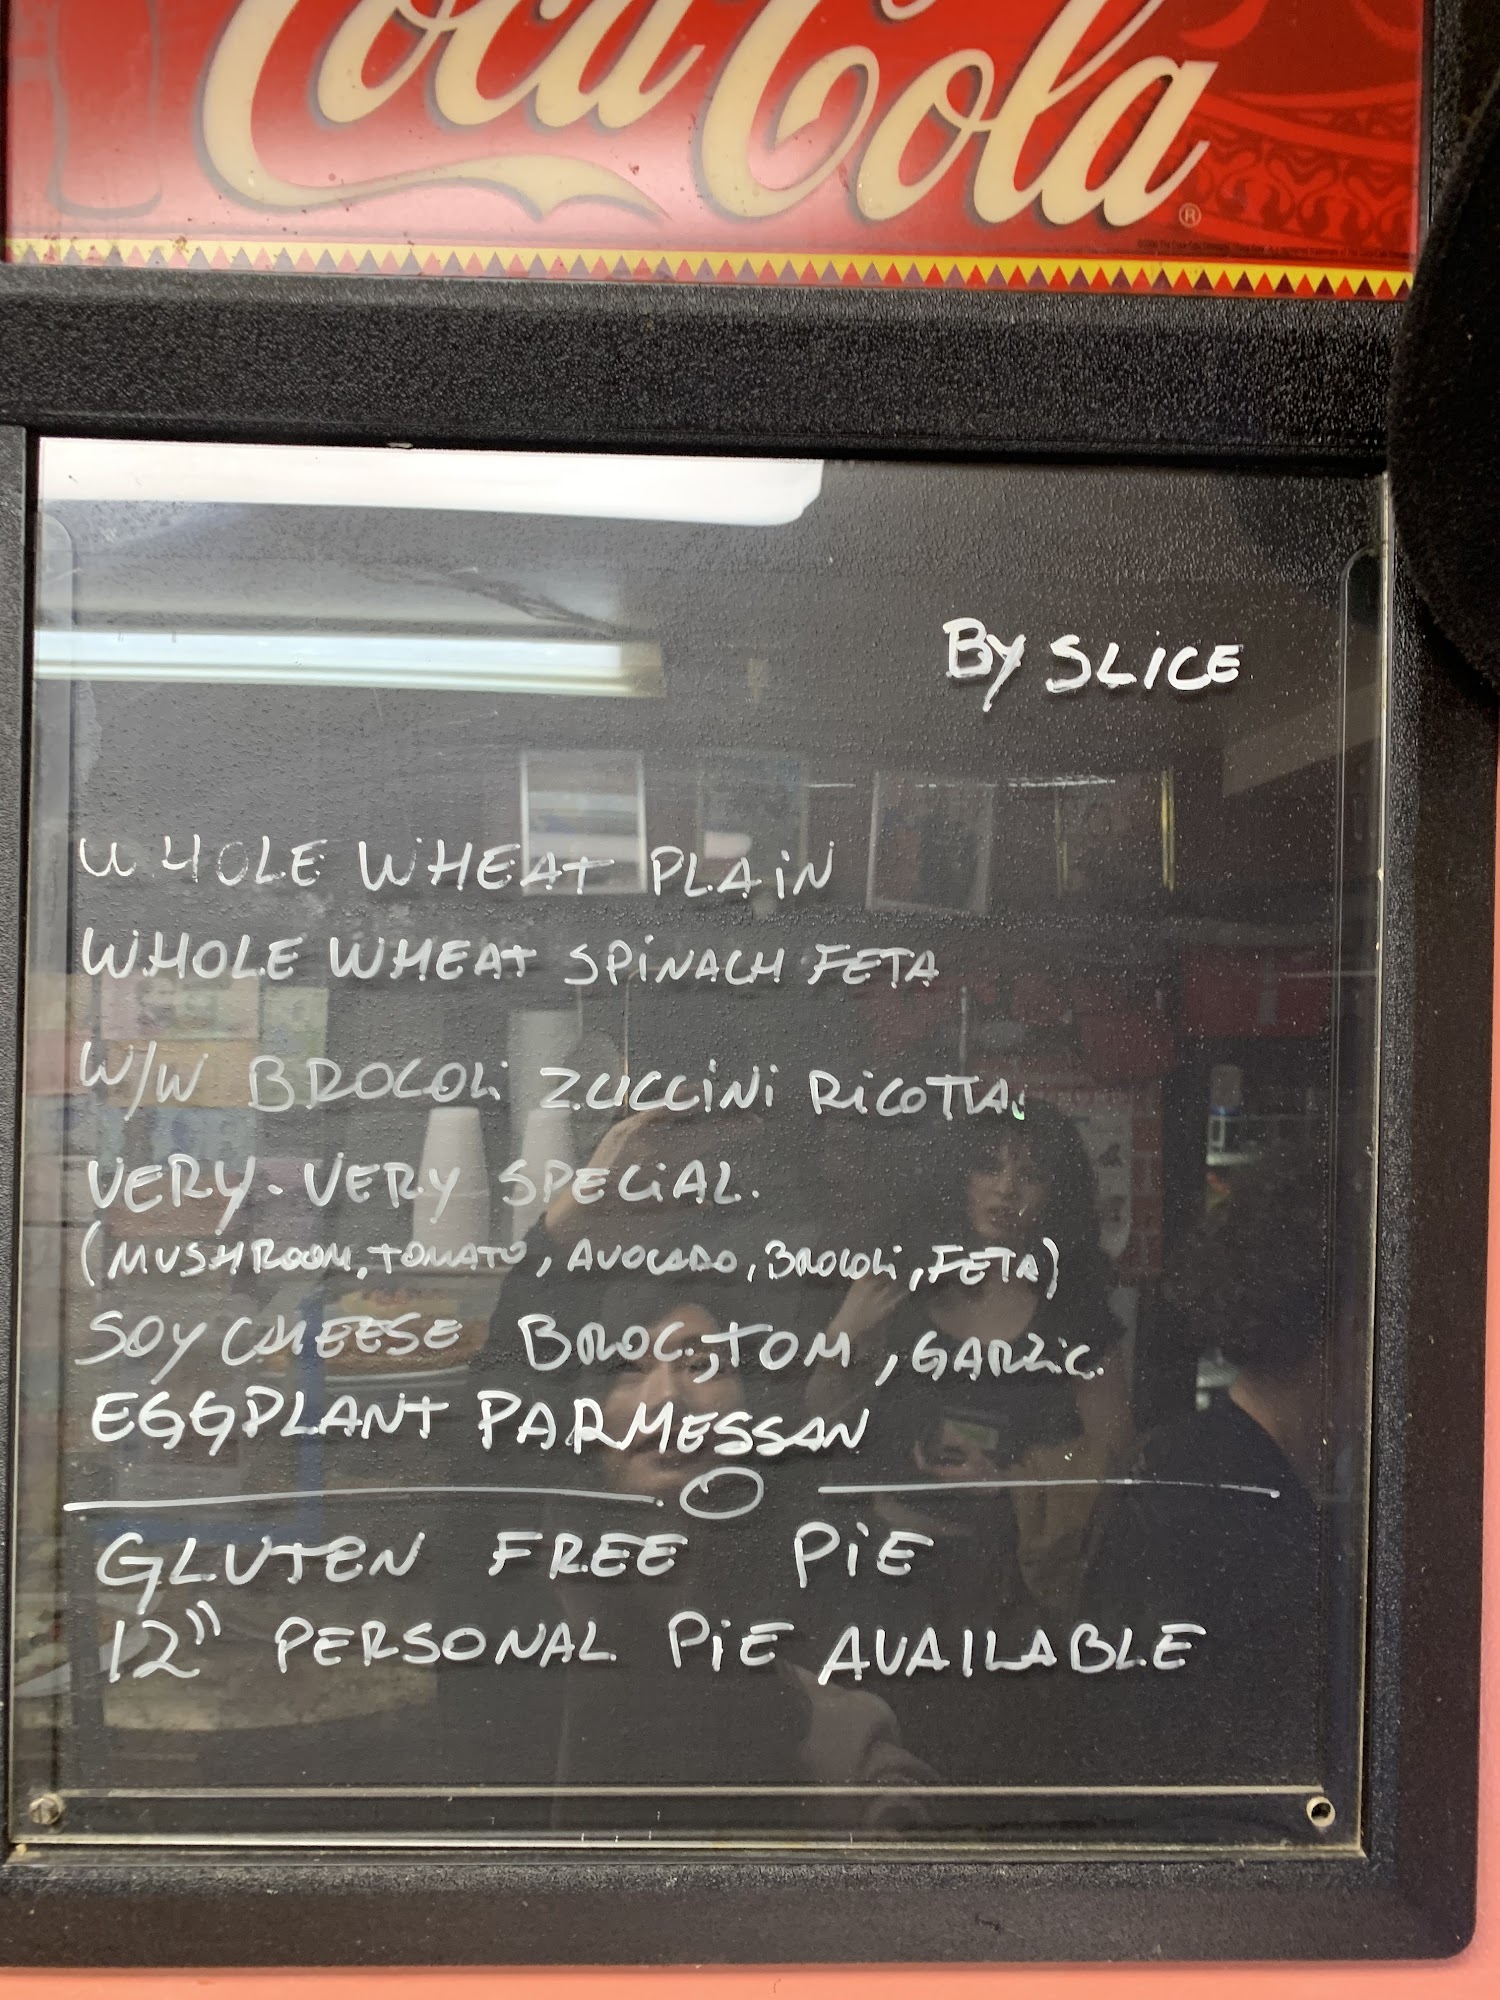 Coca Cola®
BY SLICE
WHOLE WHEAT PLAiN
WHOLE WHEAT SPiNACH FETA
W/W BROCOLi ZUCCiNi RiCOTTA.
VERY-VERY SPECiAL.
(MUSHROOM, TOMATO, AVOCADO, BROCOLi, FETA)
SOY CHEESE BROC., TOM, GARLiC.
EGGPLANT PARMESSAN
GLUTEN FREE PiE
12" PERSONAL PiE AVAILABLE